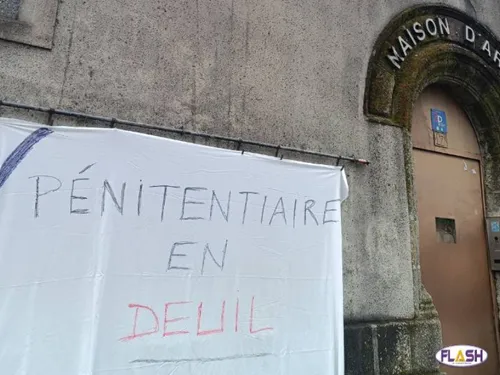 MAISON D'AR
PÉNITENTIAIRE
EN
DEUIL
FLASH